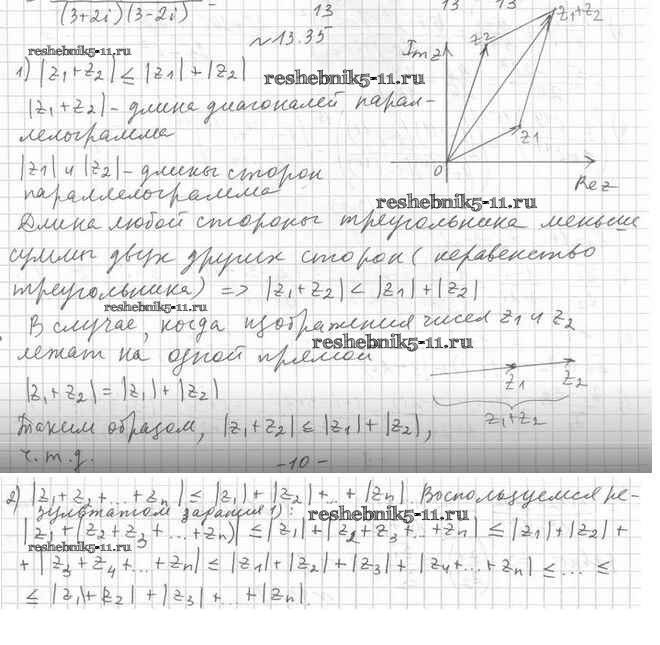 (3+2i)(3-2i)
13
13 13
№13.35
reshebnik5-11.ru
1) |z₁+z₂| ≤ |z₁|+|z₂|
reshebnik5-11.ru
Im z
z2
z₁+z₂
z1
0
Re z
|z₁+z₂| - длина диагоналей парал-
лелограмма
|z1| и |z₂| - длины сторон
параллелограмма
reshebnik5-11.ru
Длина любой стороны треугольника меньше
суммы двух других сторон (неравенство
треугольника) => |z₁+z₂| < |z₁|+|z₂|
reshebnik5-11.ru
В случае, когда изображения чисел z1 и z2
лежат на одной прямой
reshebnik5-11.ru
|z₁+z₂| = |z₁|+|z₂|
z₁ z₂
z₁+z₂
Таким образом, |z₁+z₂| ≤ |z₁|+|z₂|,
ч.т.д.
-10-
2) |z₁+z₂+...+zn| ≤ |z₁|+|z₂|+...+|zn|. Воспользуемся ре-
зультатом задания 1):
reshebnik5-11.ru
|z₁+(z₂+z₃+...+zn)| ≤ |z₁|+|z₂+z₃+...+zn| ≤ |z₁|+|z₂|+
reshebnik5-11.ru
+|z₃+z₄+...+zn| ≤ |z₁|+|z₂|+|z₃|+|z₄+...+zn| ≤ ... ≤
≤ |z₁|+|z₂|+|z₃|+...+|zn|.